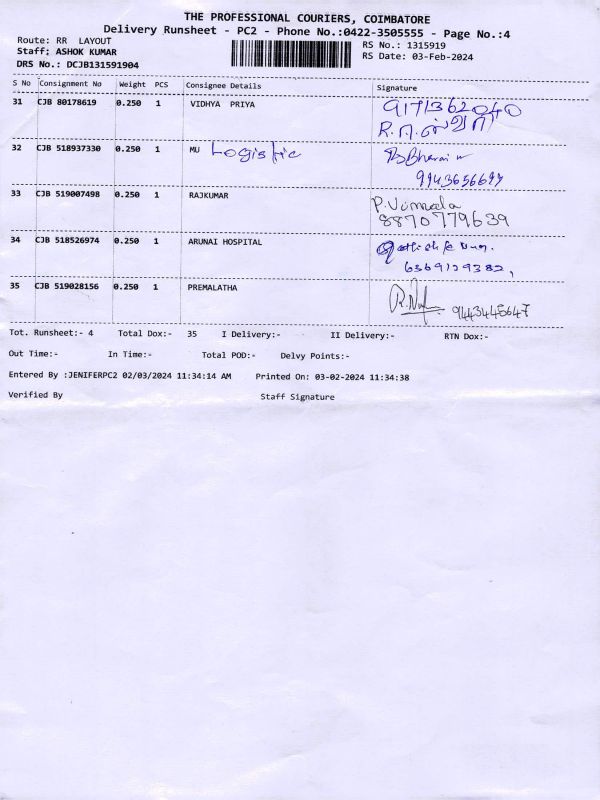 THE PROFESSIONAL COURIERS, COIMBATORE
Delivery Runsheet - PC2 - Phone No.:0422-3505555 - Page No.:4
Route: RR LAYOUT
RS No.: 1315919
Staff; ASHOK KUMAR
RS Date: 03-Feb-2024
DRS No.: DCJB131591904
S No Consignment No Weight PCS Consignee Details Signature
31 CJB 80178619 0.250 1 VIDHYA PRIYA 9171362040
R.ா.
32 CJB 518937330 0.250 1 MU Logistic
33 CJB 519007498 0.250 1 RAJKUMAR
8870779639
34 CJB 518526974 0.250 1 ARUNAI HOSPITAL
6369129382,
35 CJB 519028156 0.250 1 PREMALATHA
9443445647
Tot. Runsheet:- 4 Total Dox:- 35 I Delivery:- II Delivery:- RTN Dox:-
Out Time:- In Time:- Total POD:- Delvy Points:-
Entered By :JENIFERPC2 02/03/2024 11:34:14 AM Printed On: 03-02-2024 11:34:38
Verified By Staff Signature